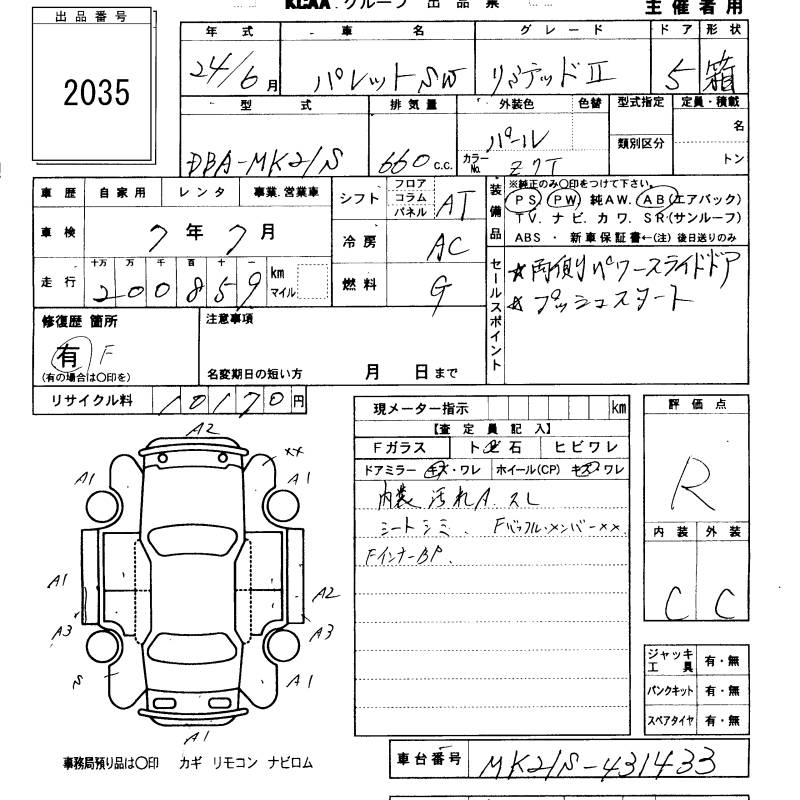 出品番号
2035
KCAA グループ 出品票
主催者用
年式 車名 グレード ドア 形状
24/6月 パレットSW リミテッドⅡ 5 箱
型式 排気量 外装色 色替 型式指定 定員・積載
類別区分 名
トン
DBA-MK21S 660 c.c. パール カラーNo. Z7T
車歴 自家用 レンタ 事業.営業車
シフト フロア コラム パネル AT
装備品 ※純正のみ〇印をつけて下さい。
PS PW 純AW. AB(エアバック)
TV. ナビ. カワ. SR(サンルーフ)
ABS ・ 新車保証書←(注) 後日送りのみ
車検 7年7月
冷房 AC
走行 十万 万 千 百 十 一
200859 km マイル
燃料 G
セールスポイント
★両側パワースライドドア
★プッシュスタート
修復歴 箇所
有 F
(有の場合は〇印を)
注意事項
名変期日の短い方 月 日まで
リサイクル料 10170円
現メーター指示 km
【査定員記入】
Fガラス トビ石 ヒビワレ
ドアミラー キズ・ワレ ホイール(CP) キズ・ワレ
内装 汚れA. スレ
シートシミ、 Fバッフル・メンバーxx.
FインナーBP.
評価点
R
内装 外装
C C
A2
A1 xx A1
A1 A2
A3 A3
S A1
A1
ジャッキ工具 有・無
パンクキット 有・無
スペアタイヤ 有・無
事務局預り品は〇印 カギ リモコン ナビロム
車台番号 MK21S-431433